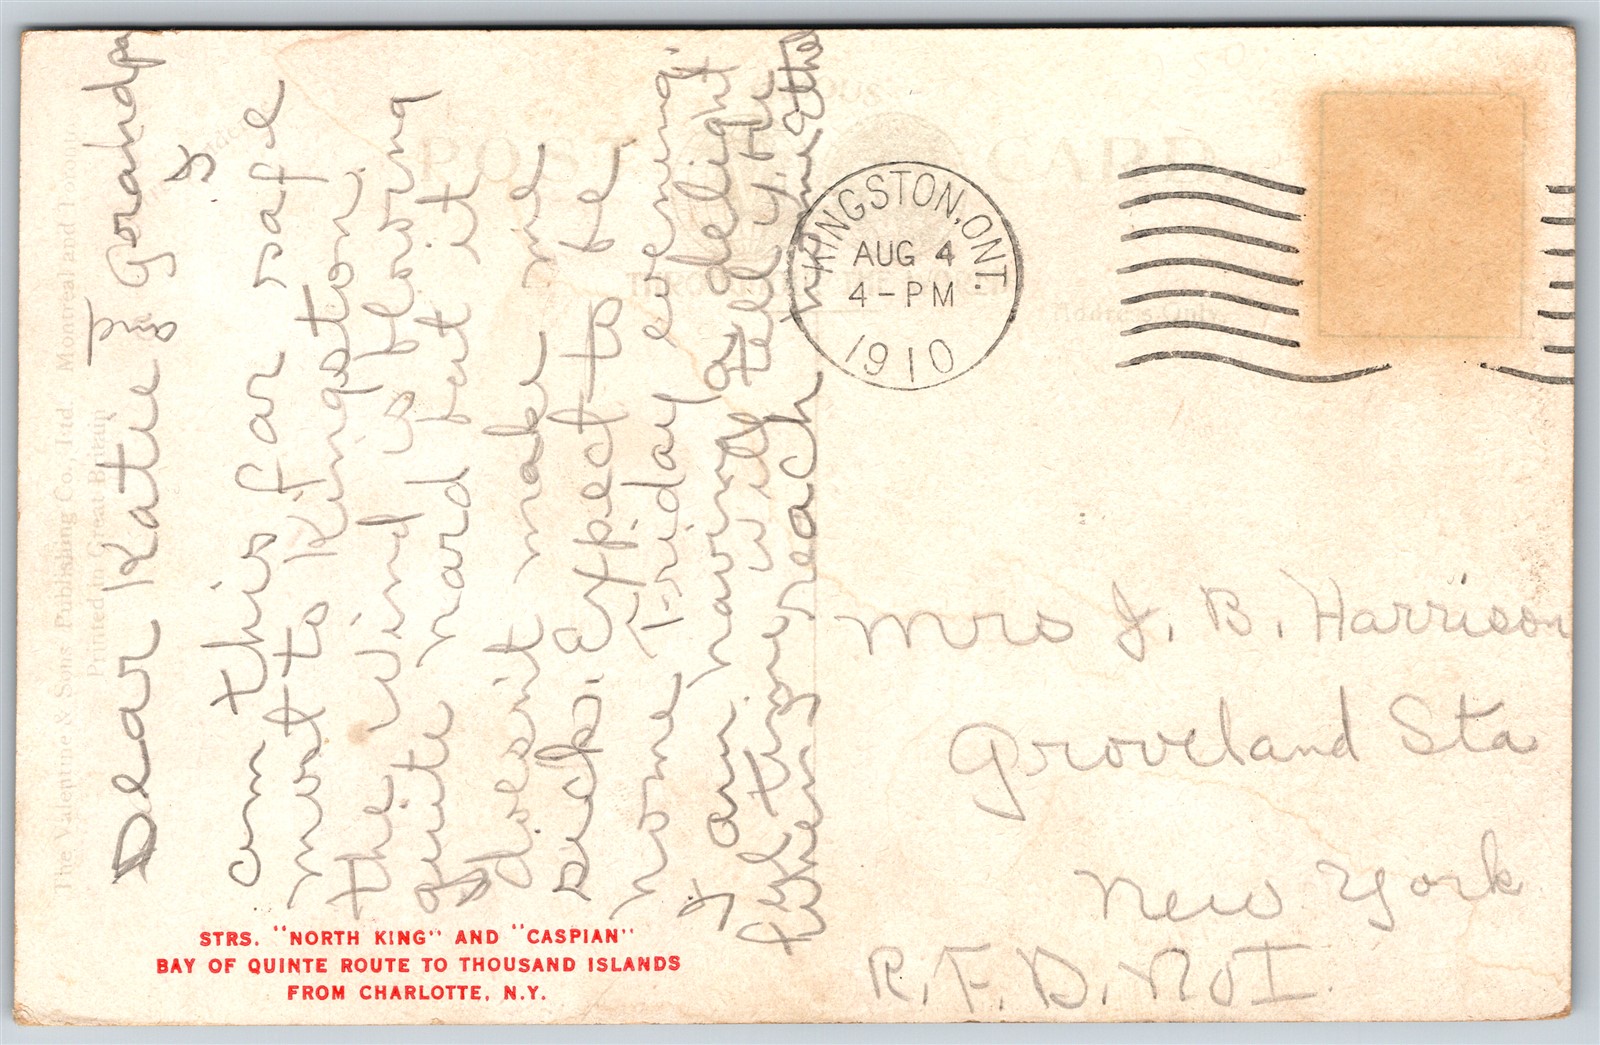 Dear Katie & Grandpa
I
am this far safe
most to Kingston
the wind is blowing
quite hard but it
doesnt make me
sick. Expect to be
home Friday evening.
I am having a delight
ful time, will tell you
when reach home Ethel
POST CARD
KINGSTON, ONT.
AUG 4
4-PM
1910
Mrs J. B. Harrison
Groveland Sta
New York
R.F.D. No I.
STRS. "NORTH KING" AND "CASPIAN"
BAY OF QUINTE ROUTE TO THOUSAND ISLANDS
FROM CHARLOTTE, N.Y.
The Valentine & Sons Publishing Co., Ltd. Montreal and Toronto
Printed in Great Britain